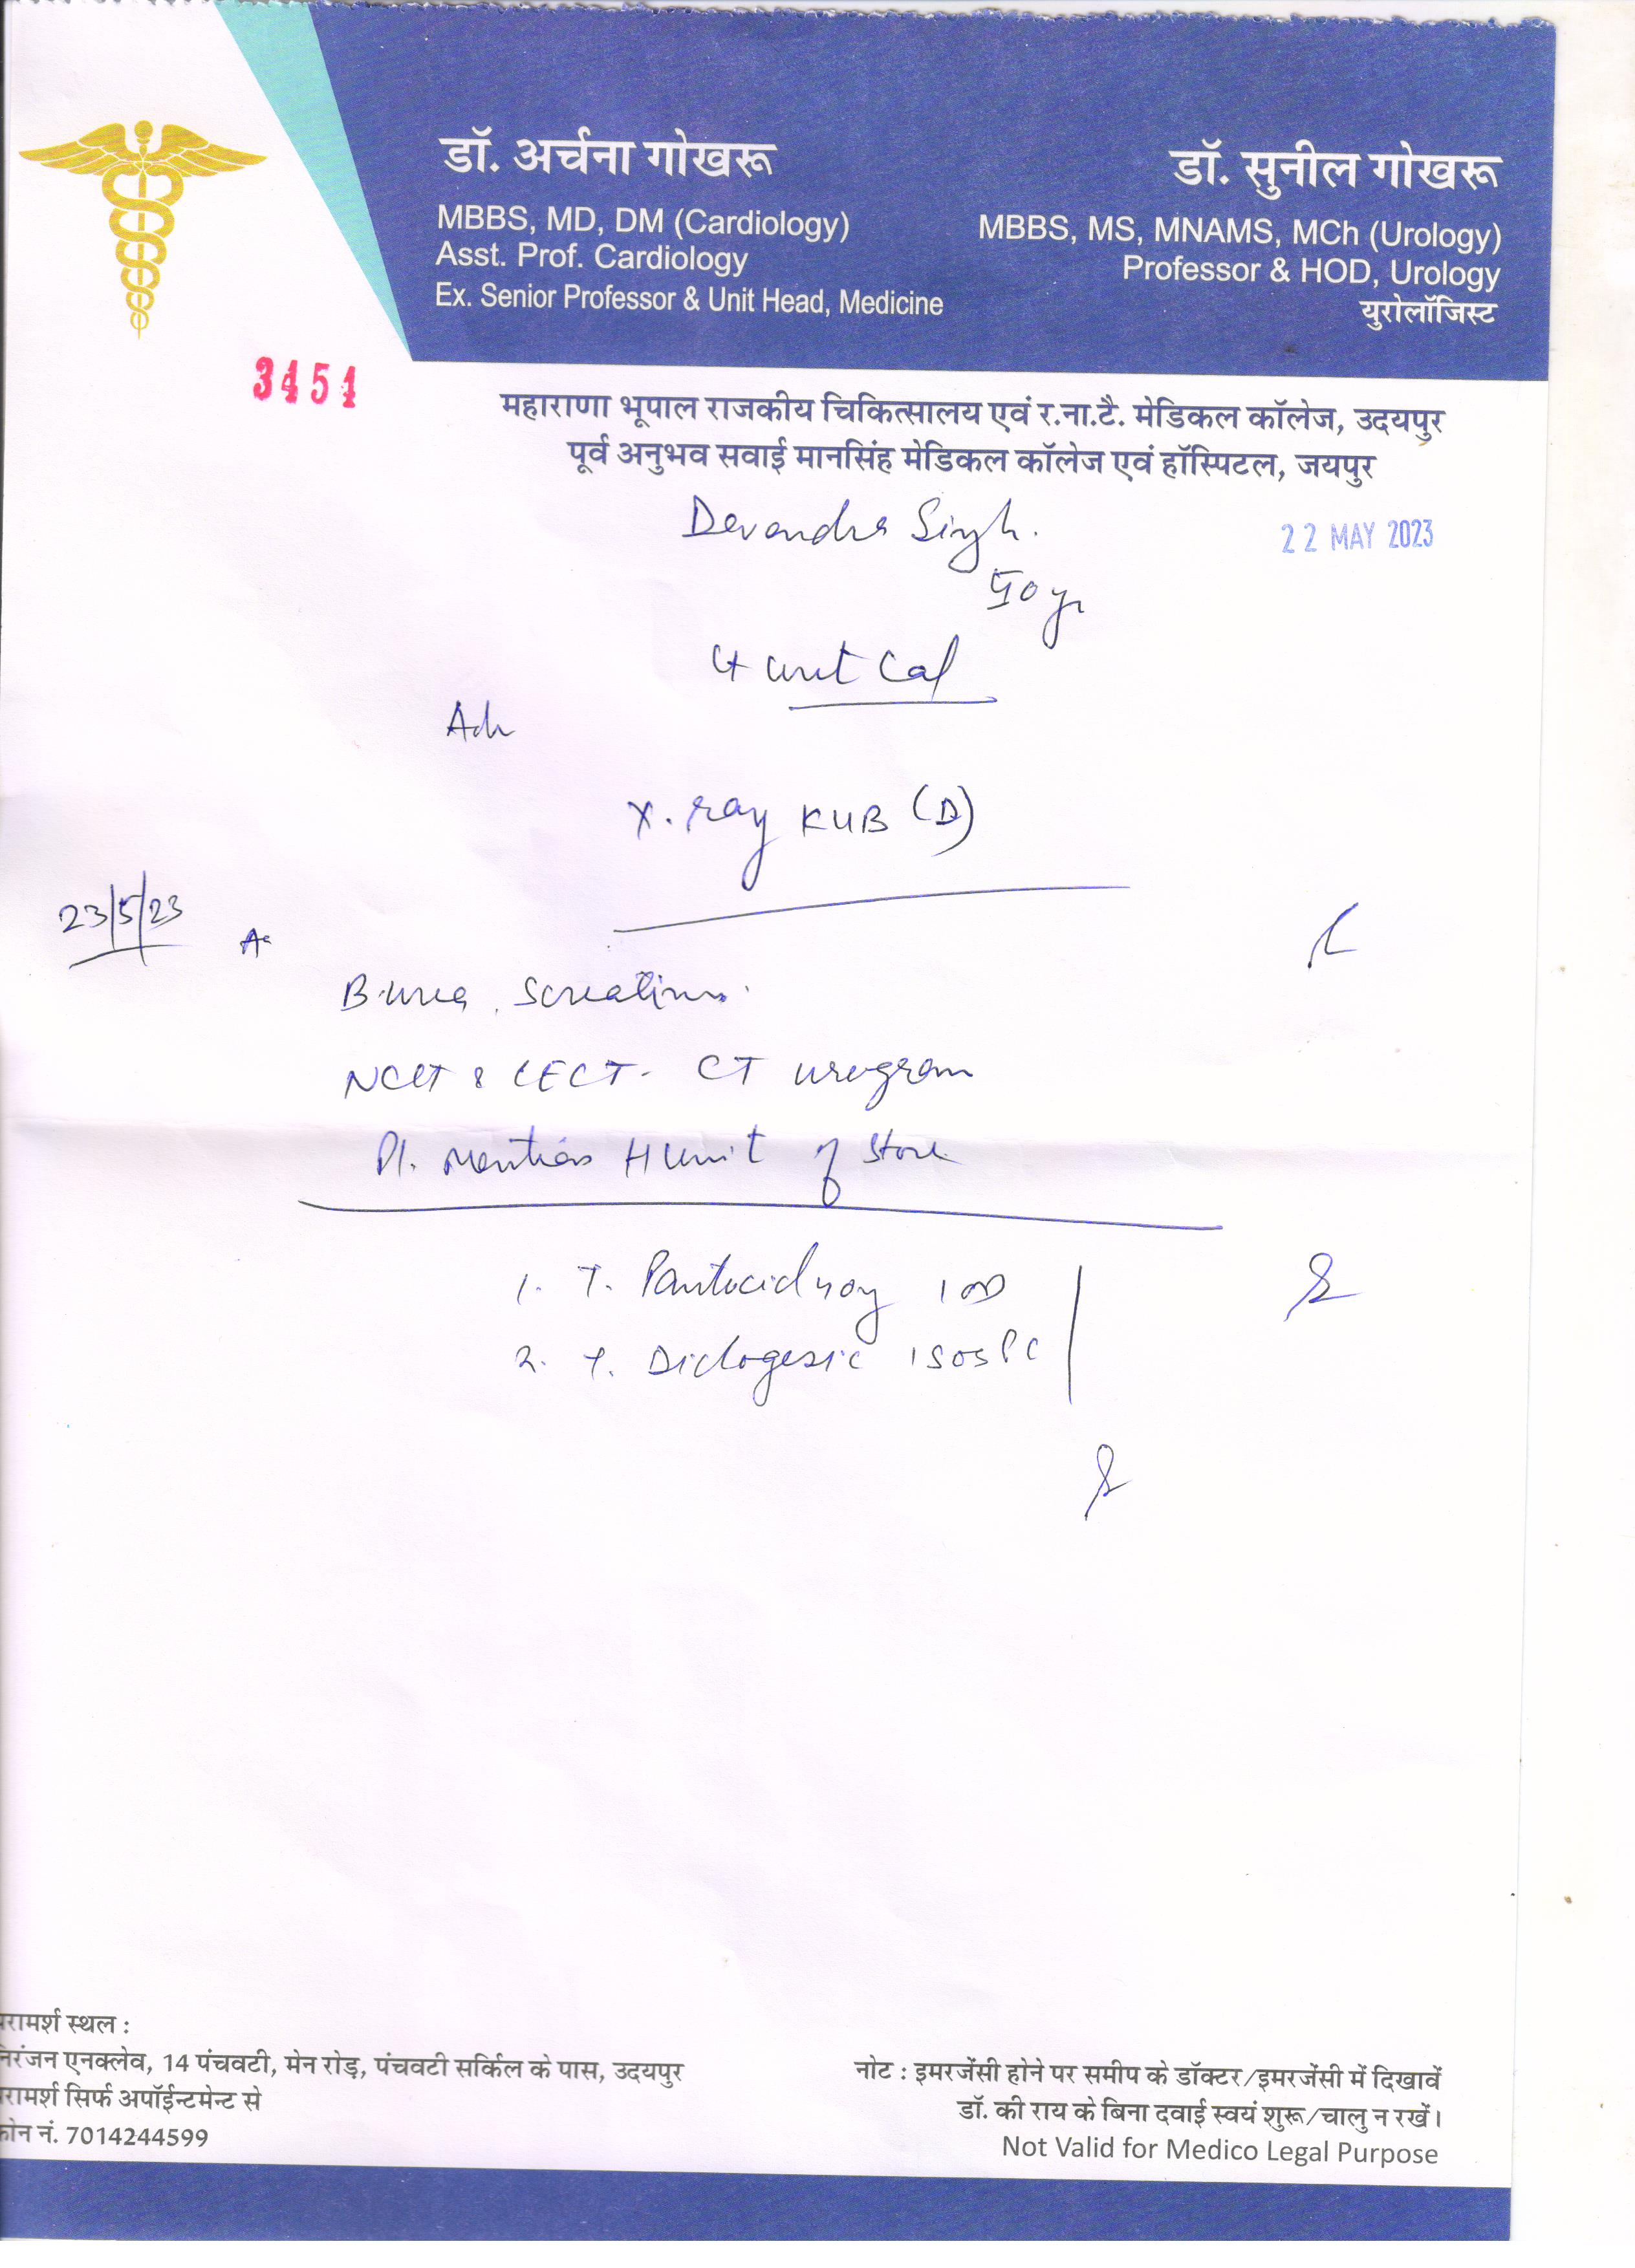 डॉ. अर्चना गोखरू
MBBS, MD, DM (Cardiology)
Asst. Prof. Cardiology
Ex. Senior Professor & Unit Head, Medicine
डॉ. सुनील गोखरू
MBBS, MS, MNAMS, MCh (Urology)
Professor & HOD, Urology
युरोलॉजिस्ट
3454
महाराणा भूपाल राजकीय चिकित्सालय एवं र.ना.टै. मेडिकल कॉलेज, उदयपुर
पूर्व अनुभव सवाई मानसिंह मेडिकल कॉलेज एवं हॉस्पिटल, जयपुर
Devendra Singh.
22 MAY 2023
50 yr
unit Cal
X. ray KUB (D)
23/5/23
B. urea, S creatinine.
NCCT & CECT - CT urogram
Pl. Mention H unit of stone
1. T. Pantocid 40g 1 OD
2. T. Diclogesic 1 SOS PC
रामर्श स्थल :
निरंजन एनक्लेव, 14 पंचवटी, मेन रोड़, पंचवटी सर्किल के पास, उदयपुर
रामर्श सिर्फ अपॉईन्टमेन्ट से
फोन नं. 7014244599
नोट : इमरजेंसी होने पर समीप के डॉक्टर/इमरजेंसी में दिखावें
डॉ. की राय के बिना दवाई स्वयं शुरू/चालु न रखें।
Not Valid for Medico Legal Purpose